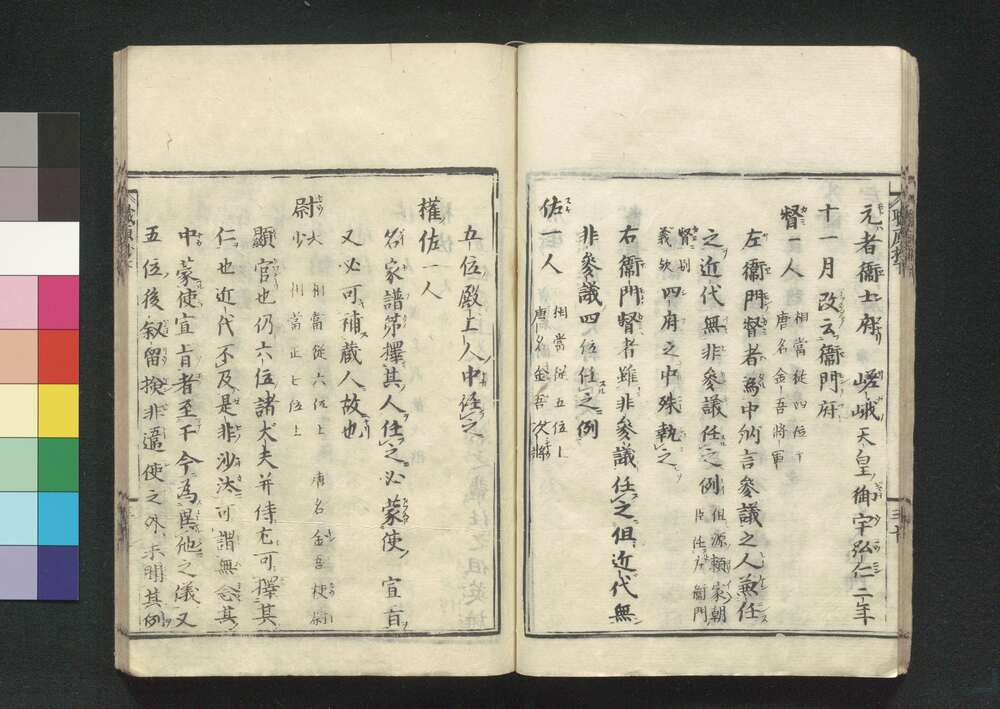 元者衞士府嵯峨天皇御宇弘仁二年
十一月改云衞門府
督一人
相當從四位下
唐名金吾將軍
左衞門督者為中納言參議之人兼任
之近代無非參議任之例
但源頼家朝
臣任左衞門
督別
義歟
四府之中殊執之
右衞門督者雖非參議任之但近代無
非參議四位任之例
佐一人
相當從五位上
唐名金吾次將
五位殿上人中任之
權佐一人
名家譜第擇其人任之必蒙使宣旨
又必可補藏人故也
尉
大相當從六位上
少相當正七位上
唐名金吾
顯官也仍六位諸大夫并侍尤可擇其
仁也近代不及是非沙汰可謂無念其
中蒙使宣旨者至于今為異他之儀又
五位後叙留
非
使之外未明其例